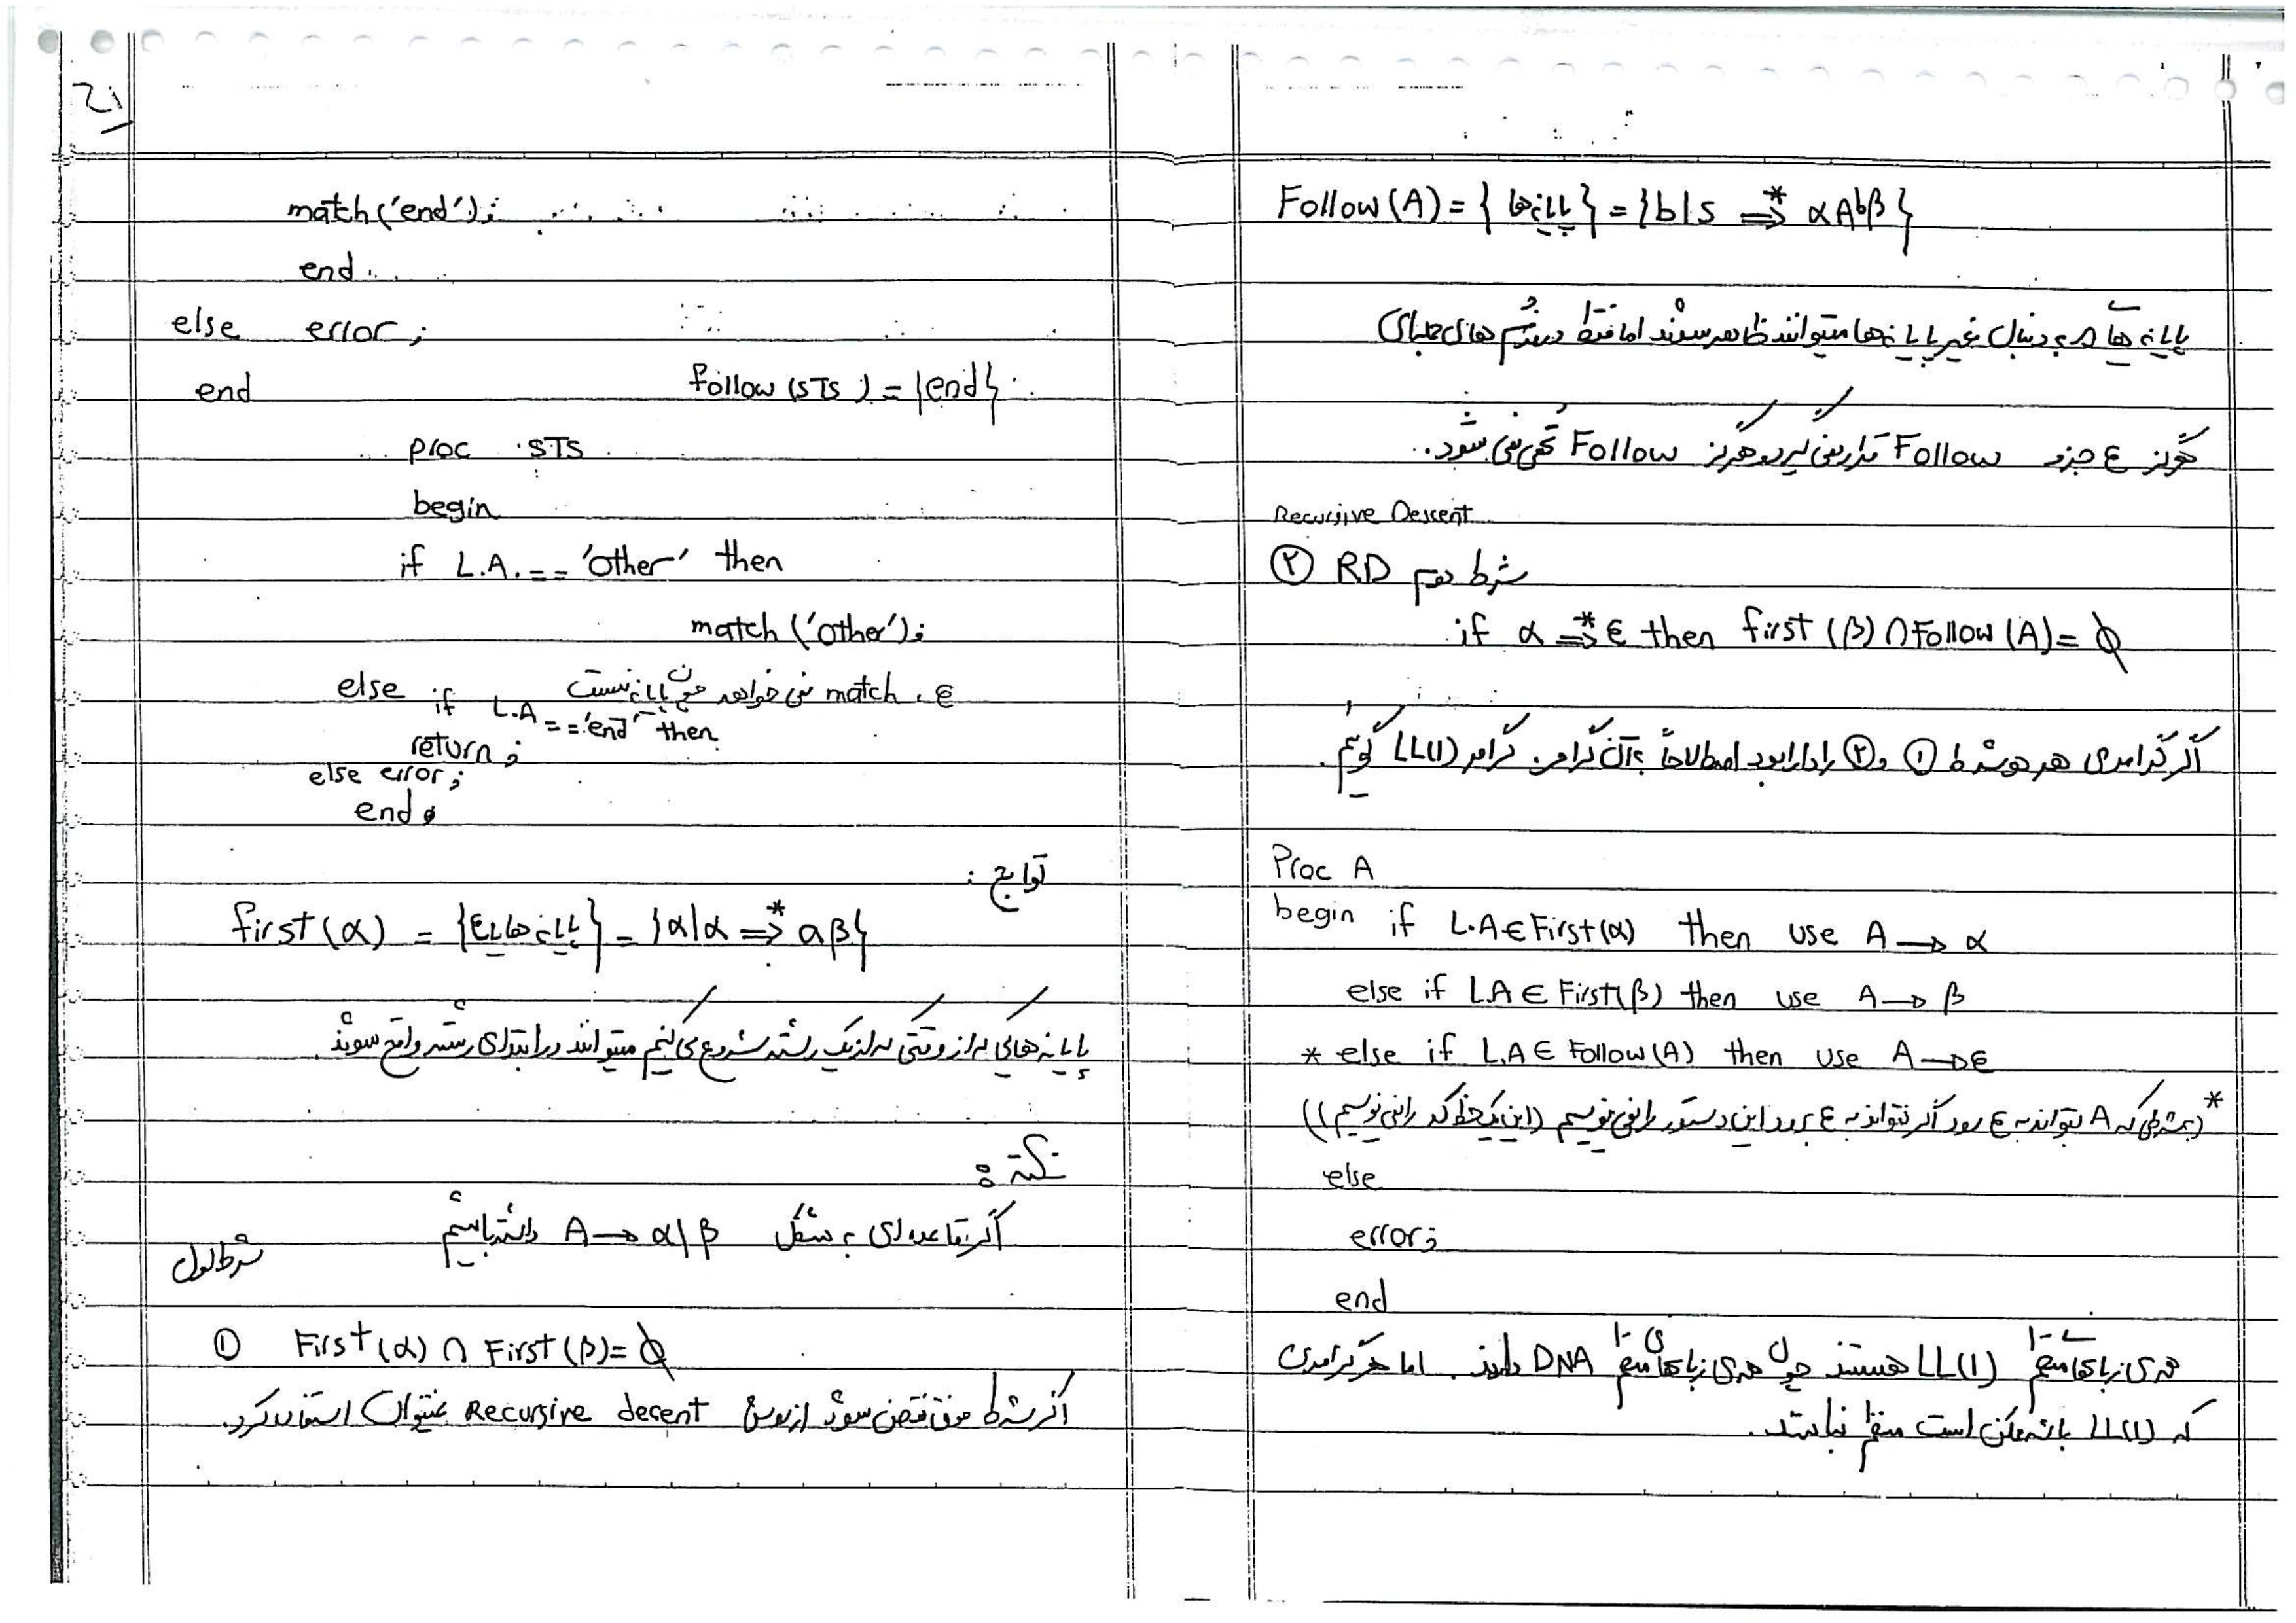 21
match('end');
end
else error;
end follow(STS) = {end}
proc STS
begin
if L.A. == 'Other' then
match('Other');
else if L.A == 'end' then ε ، match نمی خواهد چون پایانه نیست
return;
else error;
end.
توابع :
first(α) = {پایانه ها یا ε} = {α|α ⇒* aβ}
پایانه هایی که از وقتی که از یک رشته شروع می کنیم میتوانند در ابتدای رشته واقع شوند.
نکته :
اگر قاعده ای به شکل A → α|β داشته باشیم
شرط اول
① First(α) ∩ First(β) = ∅
اگر شرط فوق نقض شود از روش Recursive decent نمیتوان استفاده کرد.
Follow(A) = {پایانه ها} = {b|s ⇒* αAbβ}
پایانه هایی که به دنبال غیر پایانه ها میتوانند ظاهر شوند اما فقط در فرم های جمله ای
هرگز ε جزء Follow قرار نمی گیرد و هرگز Follow تهی نمی شود.
Recursive Descent
② RD شرط دوم
if α ⇒* ε then first(β) ∩ Follow(A) = ∅
اگر گرامری هر دو شرط ① و ② را دارا بود اصطلاحاً به آن گرامر، گرامر LL(1) گوئیم.
Proc A
begin if L.A ∈ First(α) then use A → α
else if L.A ∈ First(β) then use A → β
* else if L.A ∈ Follow(A) then use A → ε
* (بشرطی که A بتواند به ε رود اگر نتواند به ε برود این دستور را نمی نویسیم (این یک خط کد را نمی نویسیم))
else
error;
end
همه ی زبانهای منظم LL(1) هستند چون همه ی زبانهای منظم DNA دارند. اما هر گرامری
که LL(1) باشد ممکن است منظم نباشد.